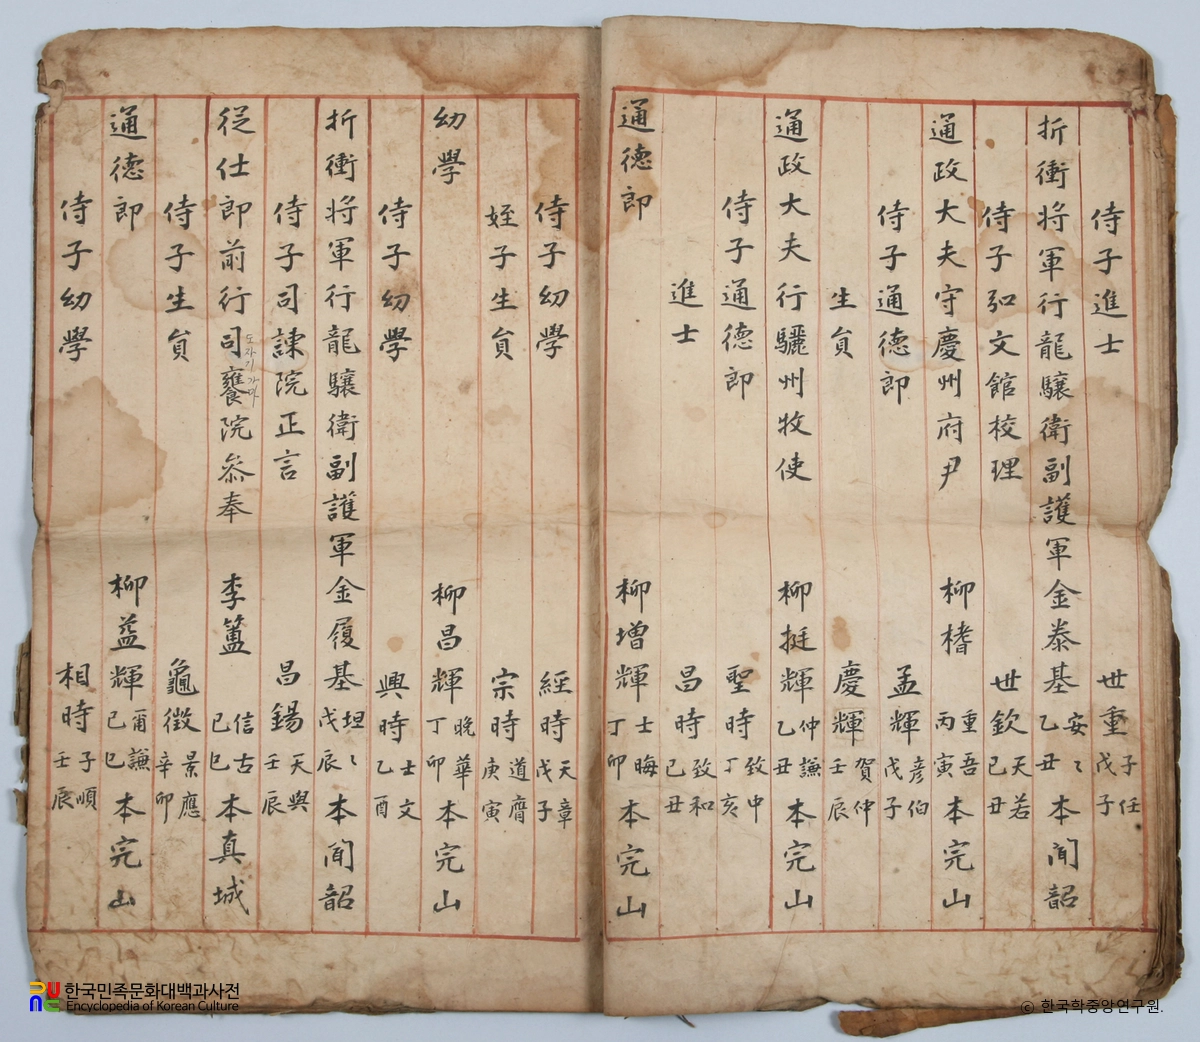 侍子進士 世重 子任 戊子
折衝將軍行龍驤衛副護軍金泰基 安〻 乙丑 本聞韶
侍子弘文館校理 世欽 天若 己丑
通政大夫守慶州府尹 柳榰 重吾 丙寅 本完山
侍子通德郎 孟輝 彦伯 戊子
生員 慶輝 賀仲 壬辰
通政大夫行驪州牧使 柳挺輝 仲謙 乙丑 本完山
侍子通德郎 聖時 致中 丁亥
進士 昌時 致和 己丑
通德郎 柳增輝 士晦 丁卯 本完山
侍子幼學 經時 天章 戊子
姪子生員 宗時 道膺 庚寅
幼學 柳昌輝 晚華 丁卯 本完山
侍子幼學 興時 士文 乙酉
折衝將軍行龍驤衛副護軍金履基 坦〻 戊辰 本聞韶
侍子司諫院正言 昌錫 天與 壬辰
從仕郎前行司饔院叅奉 李簠 信古 己巳 本真城
도자기 가마
侍子生員 龜徵 景應 辛卯
通德郎 柳益輝 爾謙 己巳 本完山
侍子幼學 相時 子順 壬辰
한국민족문화대백과사전
Encyclopedia of Korean Culture
ⓒ 한국학중앙연구원.